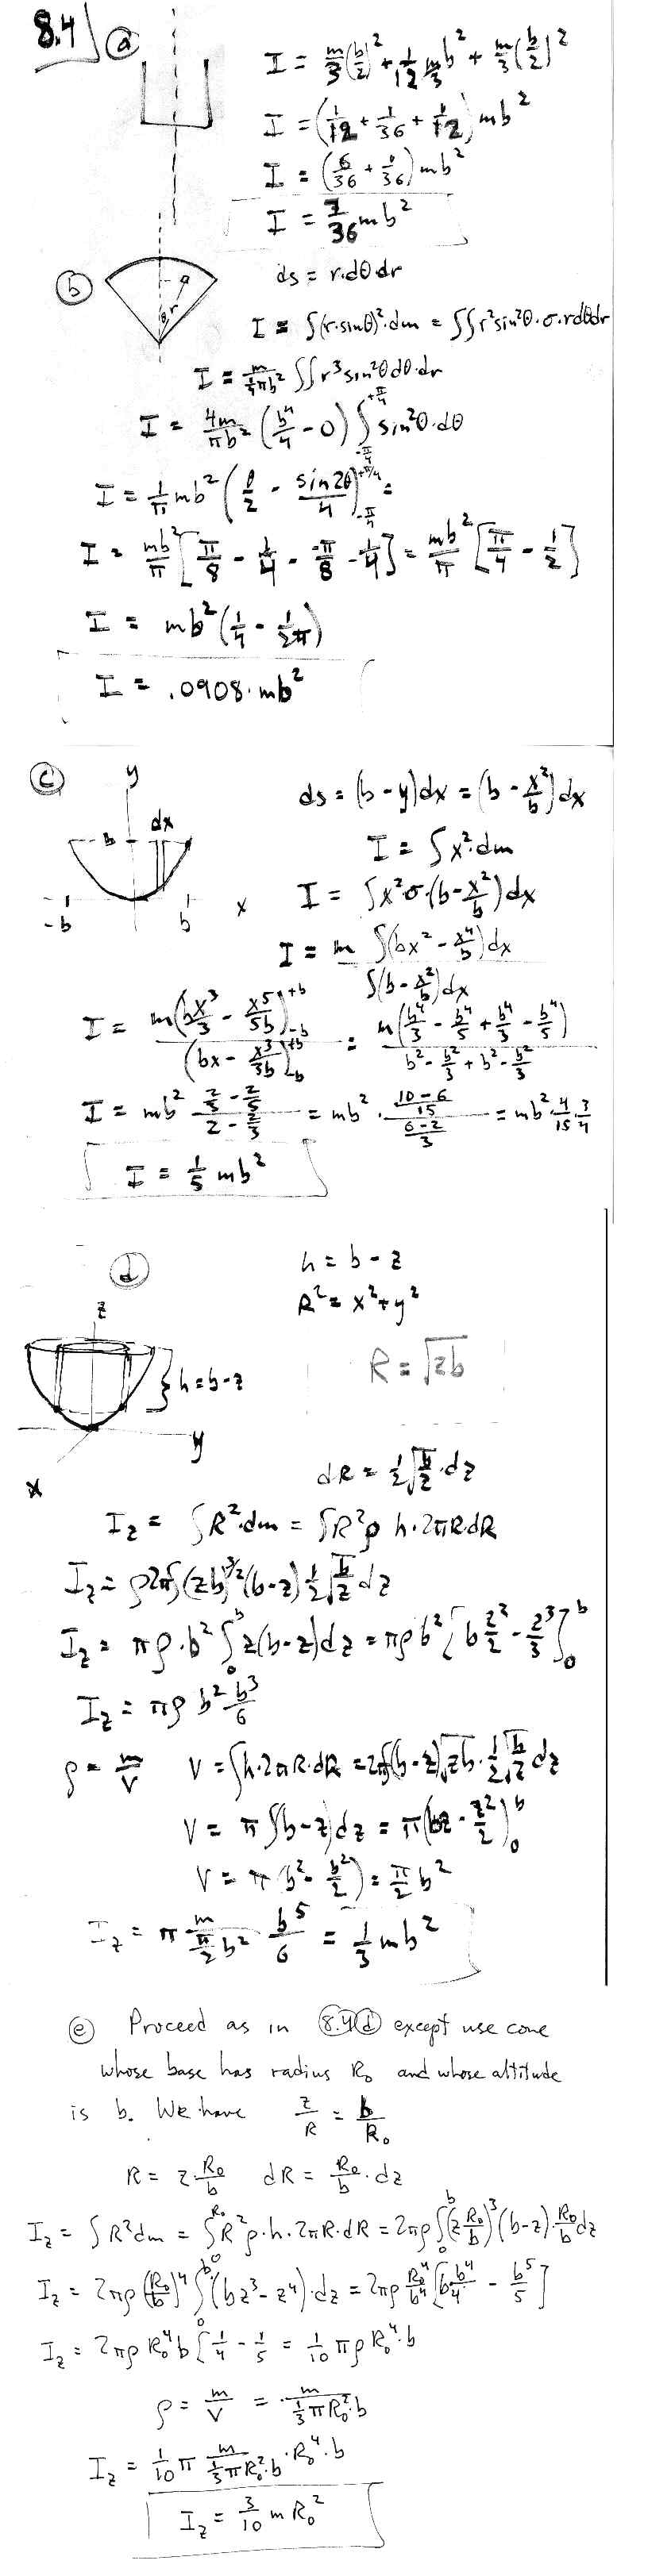 8.4) (a)
I = m/3 (b/2)² + 1/12 m/3 b² + m/3 (b/2)²
I = (1/12 + 1/36 + 1/12) mb²
I = (6/36 + 1/36) mb²
I = 7/36 mb²
(b) a θ r
ds = r·dθ·dr
I = ∫(r·sinθ)²·dm = ∫∫r²sin²θ·σ·rdθdr
I = m/(¼πb²) ∫∫r³sin²θdθ·dr
I = 4m/πb² (b⁴/4 - 0) ∫_{-π/4}^{+π/4} sin²θ·dθ
I = 1/π mb² (θ/2 - sin2θ/4)|_{-π/4}^{+π/4} =
I = mb²/π [π/8 - 1/4 - -π/8 - 1/4] = mb²/π [π/4 - 1/2]
I = mb² (1/4 - 1/2π)
I = .0908·mb²
(c) y
b dx
-b b x
ds = (b-y)dx = (b - x²/b)dx
I = ∫x²·dm
I = ∫x²σ·(b - x²/b)dx
I = m ∫(bx² - x⁴/b)dx / ∫(b - x²/b)dx
I = m(bx³/3 - x⁵/5b)|_{-b}^{+b} / (bx - x³/3b)|_{-b}^{+b} = m(b⁴/3 - b⁴/5 + b⁴/3 - b⁴/5) / (b² - b²/3 + b² - b²/3)
I = mb² (2/3 - 2/5)/(2 - 2/3) = mb² · ((10-6)/15)/((6-2)/3) = mb² · 4/15 · 3/4
I = 1/5 mb²
(d)
h = b - z
R² = x² + y²
z
R = √zb
} h = b - z
y
x
dR = 1/2 √(b/z)·dz
I_z = ∫R²·dm = ∫R²ρ h·2πRdR
I_z = ρ2π∫(zb)^{3/2}(b-z) 1/2 √(b/z) dz
I_z = πρ·b² ∫_0^b z(b-z)dz = πρb² [b z²/2 - z³/3]_0^b
I_z = πρ b² b³/6
ρ = m/V V = ∫h·2πR·dR = 2π∫(b-z)√zb · 1/2 √(b/z) dz
V = π∫(b-z)dz = π(bz - z²/2)_0^b
V = π(b² - b²/2) = π/2 b²
I_z = π m/(π/2 b²) b⁵/6 = 1/3 mb²
(e) Proceed as in (8.4)(d) except use cone
whose base has radius R₀ and whose altitude
is b. We have z/R = b/R₀
R = z R₀/b dR = R₀/b · dz
I_z = ∫R²dm = ∫_0^{R₀} R²ρ·h·2πR·dR = 2πρ∫_0^b (z R₀/b)³ (b-z)· R₀/b dz
I_z = 2πρ (R₀/b)⁴ ∫_0^b (bz³ - z⁴)·dz = 2πρ R₀⁴/b⁴ [b b⁴/4 - b⁵/5]
I_z = 2πρ R₀⁴ b [1/4 - 1/5 = 1/10 πρ R₀⁴·b
ρ = m/V = m/(⅓πR₀²·b)
I_z = 1/10 π m/(⅓πR₀²·b) · R₀⁴·b
I_z = 3/10 m R₀²